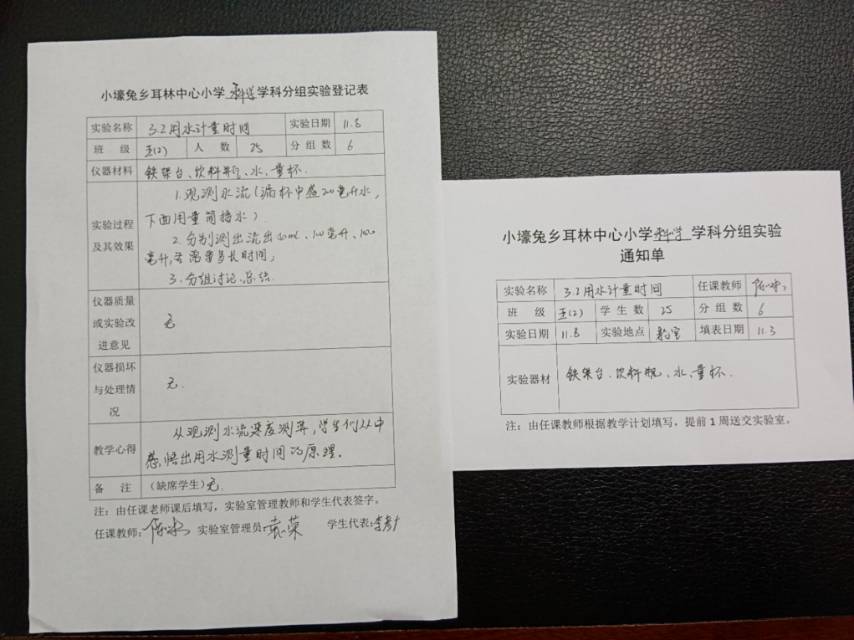 小壕兔乡耳林中心小学科学学科分组实验登记表
实验名称 3.2用水计量时间 实验日期 11.8
班 级 五(2) 人 数 25 分 组 数 6
仪器材料 铁架台、饮料瓶、水、量杯.
实验过程及其效果
1.观测水流(漏杯中盛20毫升水,
下面用量筒接水)
2.分别测出流出10mL、100毫升、
毫升,各需要多长时间,
3.分组讨论、总结.
仪器质量或实验改进意见 无
仪器损坏与处理情况 无.
教学心得 从观测水流速度测算,学生们从中
感悟出用水测量时间的原理.
备 注 (缺席学生)无.
注:由任课老师课后填写,实验室管理教师和学生代表签字。
任课教师: 实验室管理员:袁荣 学生代表:
小壕兔乡耳林中心小学科学学科分组实验
通知单
实验名称 3.2用水计量时间 任课教师
班 级 五(2) 学 生 数 25 分 组 数 6
实验日期 11.8 实验地点 填表日期 11.3
实验器材 铁架台、饮料瓶、水、量杯.
注:由任课教师根据教学计划填写,提前1周送交实验室。